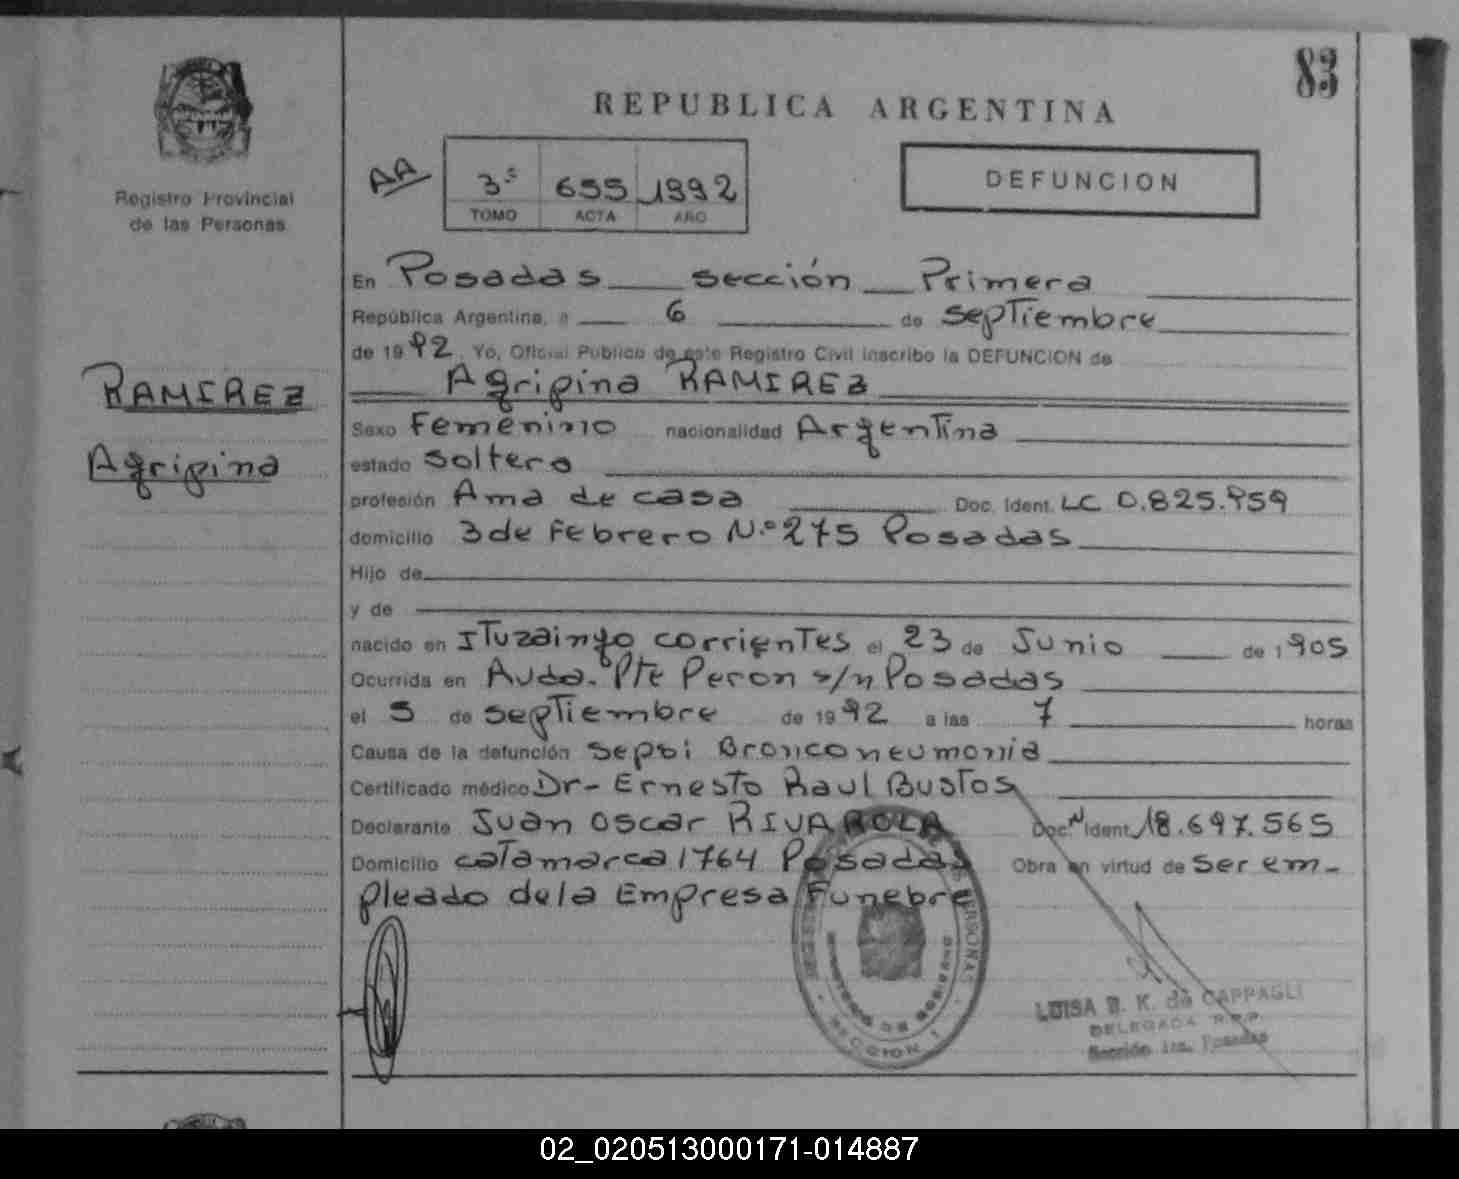 83
REPUBLICA ARGENTINA
Registro Provincial
de las Personas
AA
3º 655 1992
TOMO ACTA AÑO
DEFUNCION
RAMIREZ
Agripina
En Posadas sección Primera
República Argentina, a 6 de septiembre
de 1992. Yo, Oficial Público de este Registro Civil inscribo la DEFUNCION de
Agripina RAMIREZ
Sexo Femenino nacionalidad Argentina
estado soltera
profesión Ama de casa Doc. Ident. LC 0.825.959
domicilio 3 de Febrero N.º 275 Posadas
Hijo de
y de
nacido en Ituzaingo corrientes el 23 de Junio de 1905
Ocurrida en Avda. Pte Peron s/n Posadas
el 5 de septiembre de 1992 a las 7 horas
Causa de la defunción sepsi Bronconeumonia
Certificado médico Dr- Ernesto Raul Bustos
Declarante Juan Oscar RIVAROLA Doc. Ident. 18.697.565
Domicilio catamarca 1764 Posadas Obra en virtud de ser em-
pleado de la Empresa Funebre
PERSONAS
SECCION 1
LUISA B. K. de CAPPAGLI
DELEGADA R.P.P.
Sección 1ra. Posadas
02_020513000171-014887